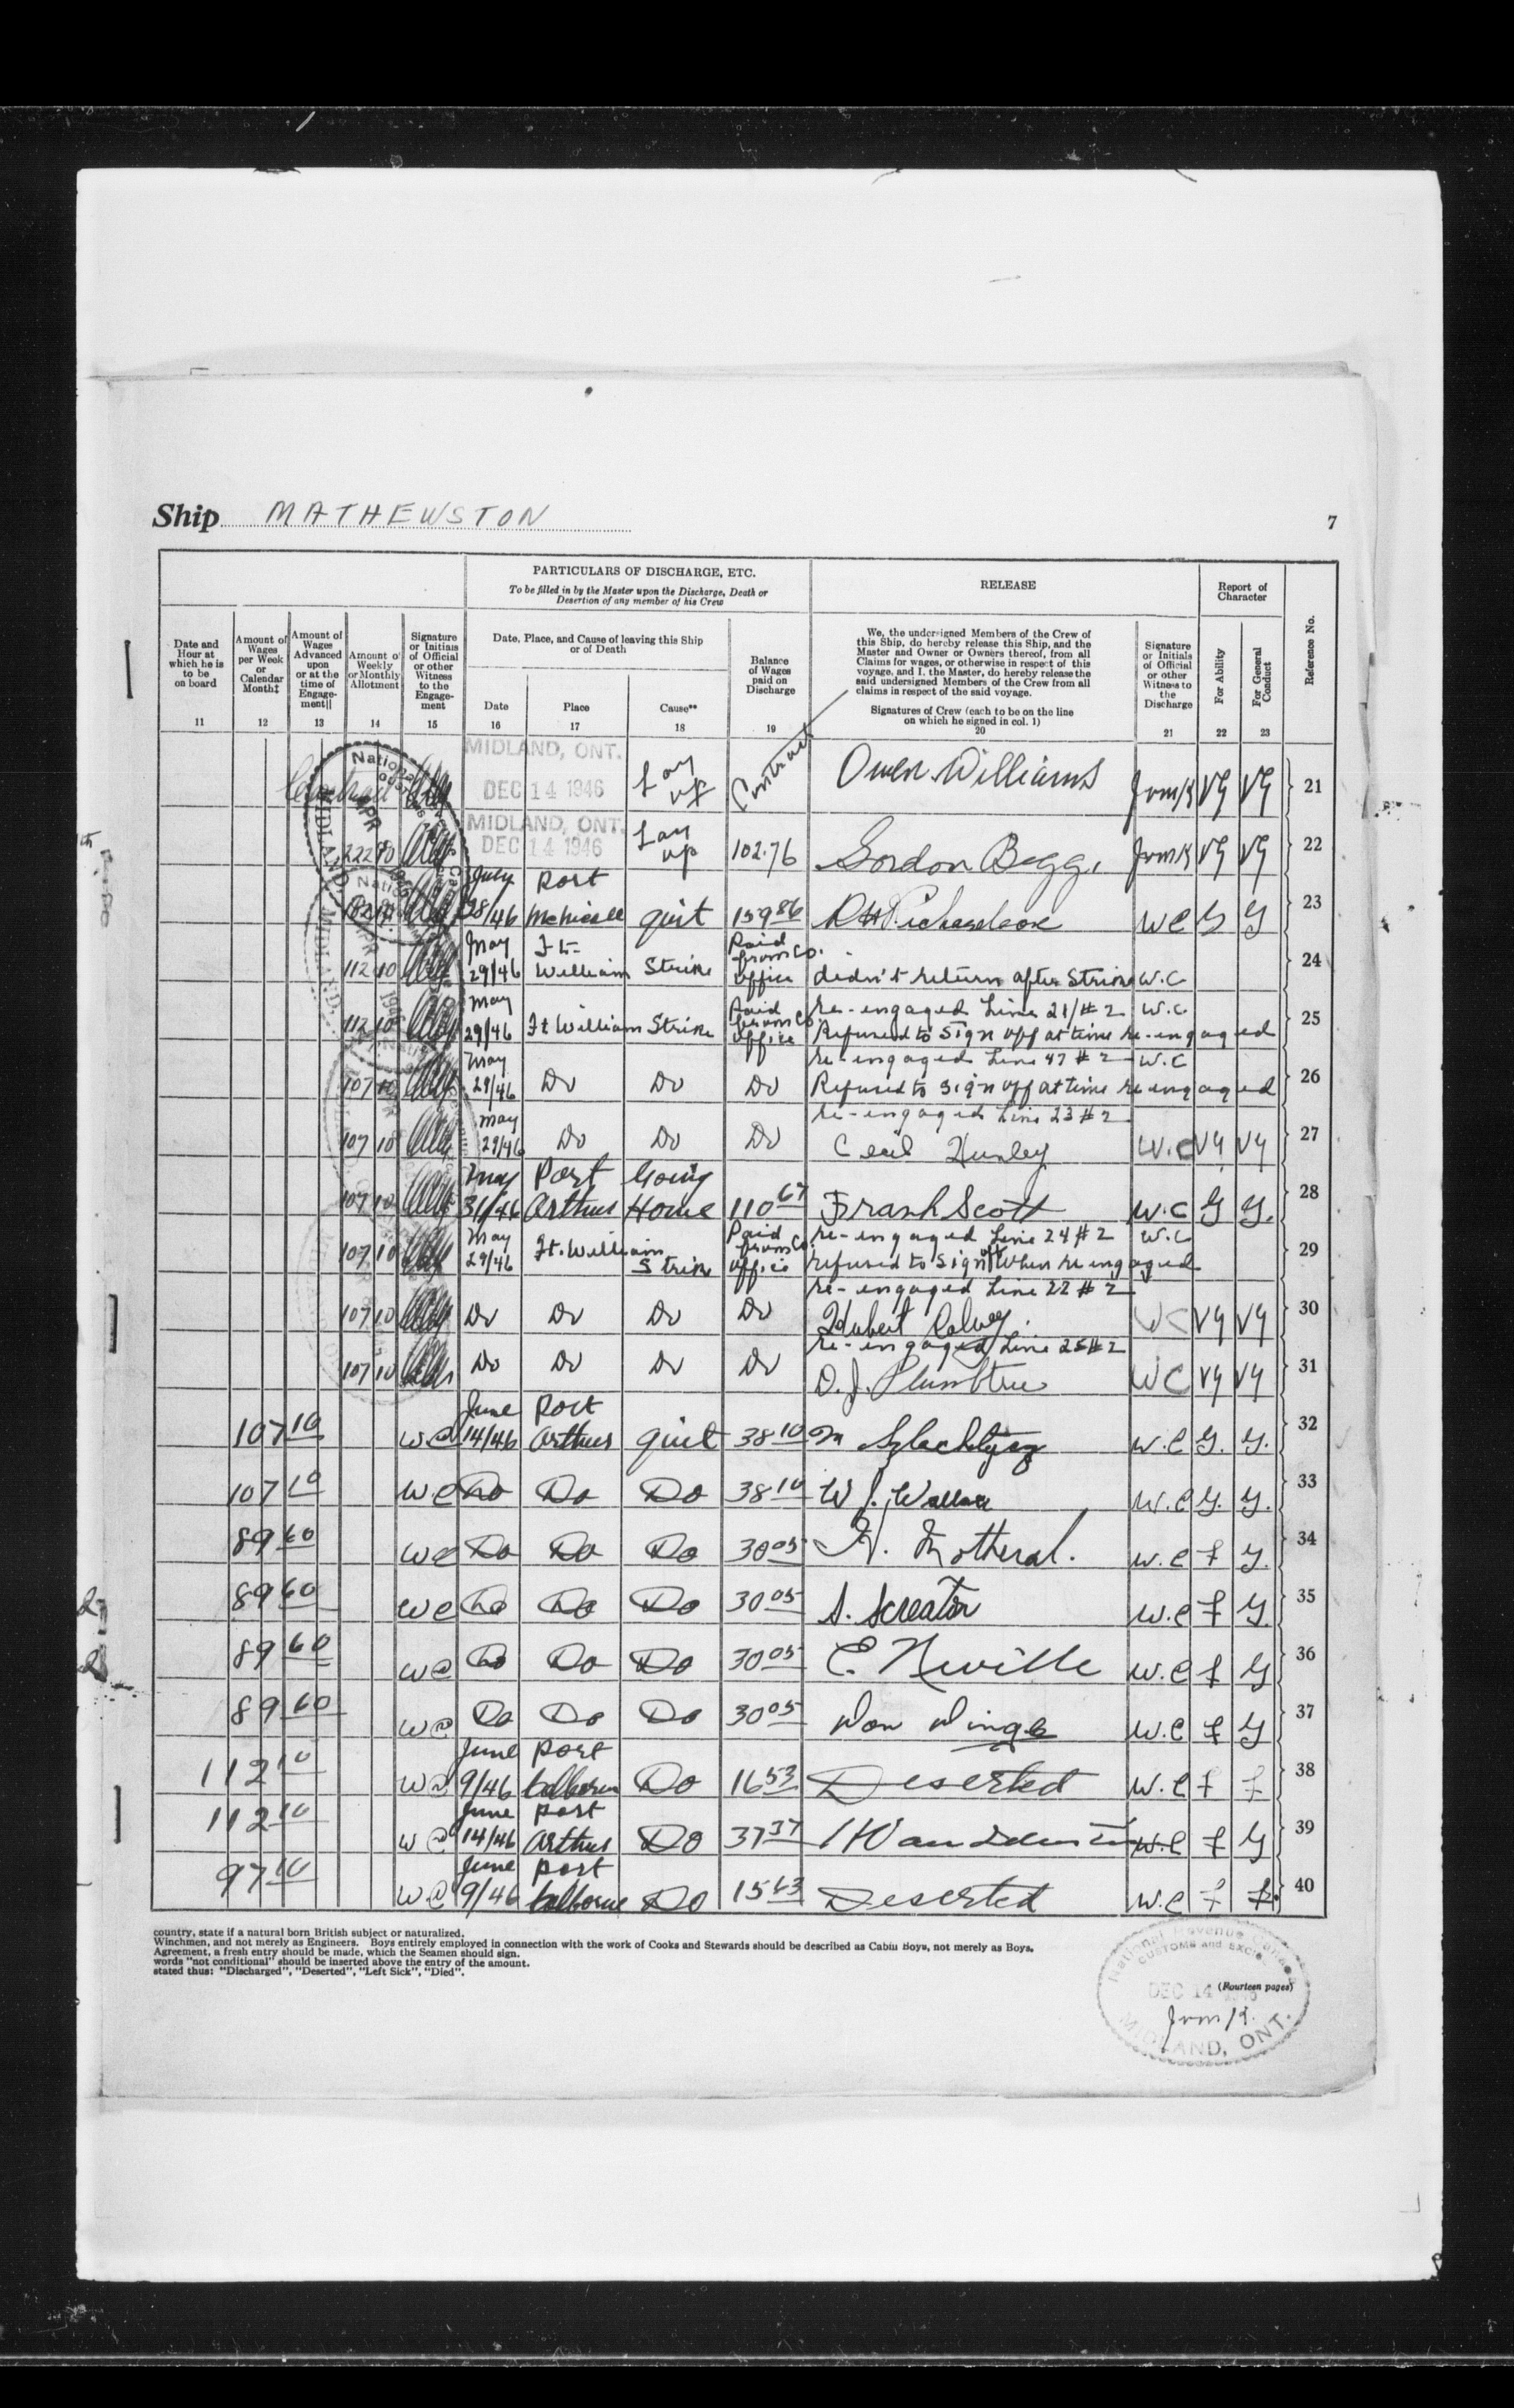 Ship MATHEWSTON
7
PARTICULARS OF DISCHARGE, ETC.
To be filled in by the Master upon the Discharge, Death or
Desertion of any member of his Crew
RELEASE
Report of
Character
Reference No.
Date and
Hour at
which he is
to be
on board
11
Amount of
Wages
per Week
or
Calendar
Month‡
12
Amount of
Wages
Advanced
upon
or at the
time of
Engage-
ment||
13
Amount of
Weekly
or Monthly
Allotment
14
Signature
or Initials
of Official
or other
Witness
to the
Engage-
ment
15
Date, Place, and Cause of leaving this Ship
or of Death
Date
16
Place
17
Cause**
18
Balance
of Wages
paid on
Discharge
19
We, the undersigned Members of the Crew of
this Ship, do hereby release this Ship, and the
Master and Owner or Owners thereof, from all
Claims for wages, or otherwise in respect of this
voyage, and I, the Master, do hereby release the
said undersigned Members of the Crew from all
claims in respect of the said voyage.
Signatures of Crew (each to be on the line
on which he signed in col. 1)
20
Signature
or Initials
of Official
or other
Witness to
the
Discharge
21
For Ability
22
For General
Conduct
23
Contract MIDLAND, ONT. DEC 14 1946 Lay up Contract Owen Williams VG VG 21
222 10 MIDLAND, ONT. DEC 14 1946 Lay up 102.76 Gordon Begg. VG VG 22
July 28/46 Port McNicoll quit 159 86 Richardson WC G G 23
112 10 May 29/46 Ft William Strike Paid from Co. office didn't return after Strike W.C 24
112 10 May 29/46 Ft William Strike Paid from Co. office re-engaged Line 21/#2 W.C.
Refused to Sign off at time re-engaged 25
107 10 May 29/46 Do Do Do re-engaged Line 47 #2 W.C
Refused to sign off at time re engaged 26
107 10 May 29/46 Do Do Do re-engaged Line 23 #2
Cecil W.C VG VG 27
107 10 May 31/46 Port Arthur Going Home 110 67 Frank Scott W.C G G. 28
107 10 May 29/46 Ft. William Strike Paid from Co. office re-engaged Line 24 #2 W.C
refused to sign off when re engaged 29
107 10 Do Do Do Do re-engaged Line 22 #2
Hubert WC VG VG 30
107 10 Do Do Do Do re-engaged Line 25 #2
O.J. Plumbtree WC VG VG 31
107 10 WC June 14/46 Port Arthur quit 38 10 W.C G. G. 32
107 10 WC Do Do Do 38 10 W J. Wallace W.C G. G. 33
89 60 WC Do Do Do 30 05 W.C F G. 34
89 60 WC Do Do Do 30 05 S. Screaton W.C F G. 35
89 60 WC Do Do Do 30 05 E. Neville W.C F G 36
89 60 WC Do Do Do 30 05 Don W.C F G 37
112 10 WC June 9/46 Port Colborne Do 16 53 Deserted W.C F F 38
112 10 WC June 14/46 Port Arthur Do 37 37 W.C F G 39
97 10 WC June 9/46 Port Colborne Do 15 63 Deserted W.C F F. 40
country, state if a natural born British subject or naturalized.
Winchmen, and not merely as Engineers. Boys entirely employed in connection with the work of Cooks and Stewards should be described as Cabin Boys, not merely as Boys.
Agreement, a fresh entry should be made, which the Seamen should sign.
words "not conditional" should be inserted above the entry of the amount.
stated thus: "Discharged", "Deserted", "Left Sick", "Died".
National Revenue Canada
CUSTOMS and EXCISE
DEC 14
(Fourteen pages)
MIDLAND, ONT.